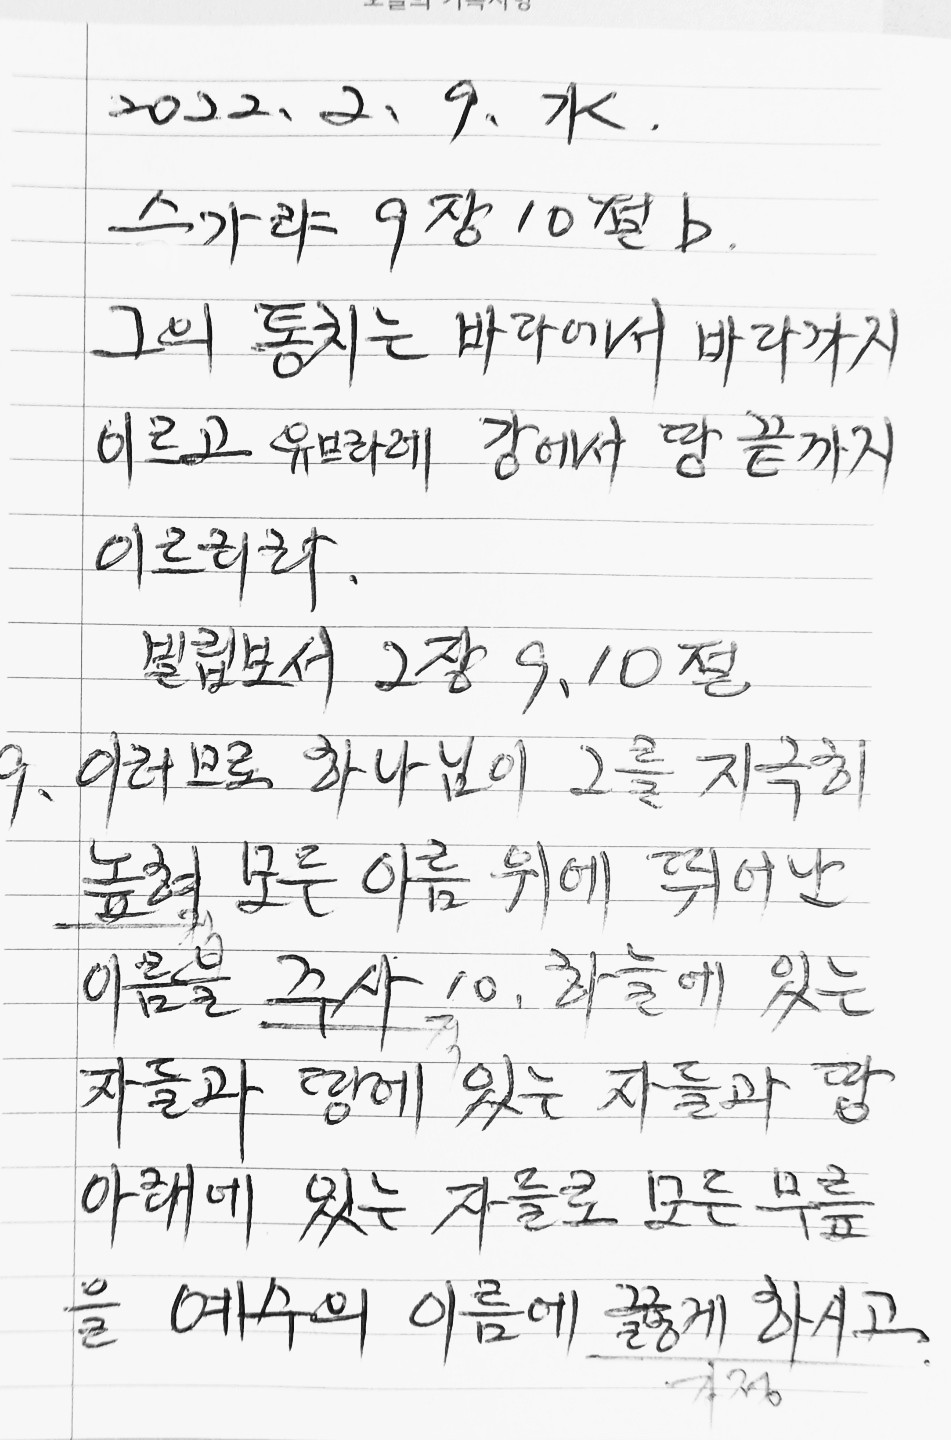 2022. 2. 9. 水.
스가랴 9장 10절 b.
그의 통치는 바다에서 바다까지
이르고 유브라데 강에서 땅 끝까지
이르리라.
빌립보서 2장 9, 10절
9. 이러므로 하나님이 그를 지극히
높혀 모든 이름 위에 뛰어난
이름을 주사 10. 하늘에 있는
자들과 땅에 있는 자들과 땅
아래에 있는 자들로 모든 무릎
을 예수의 이름에 꿇게 하시고.